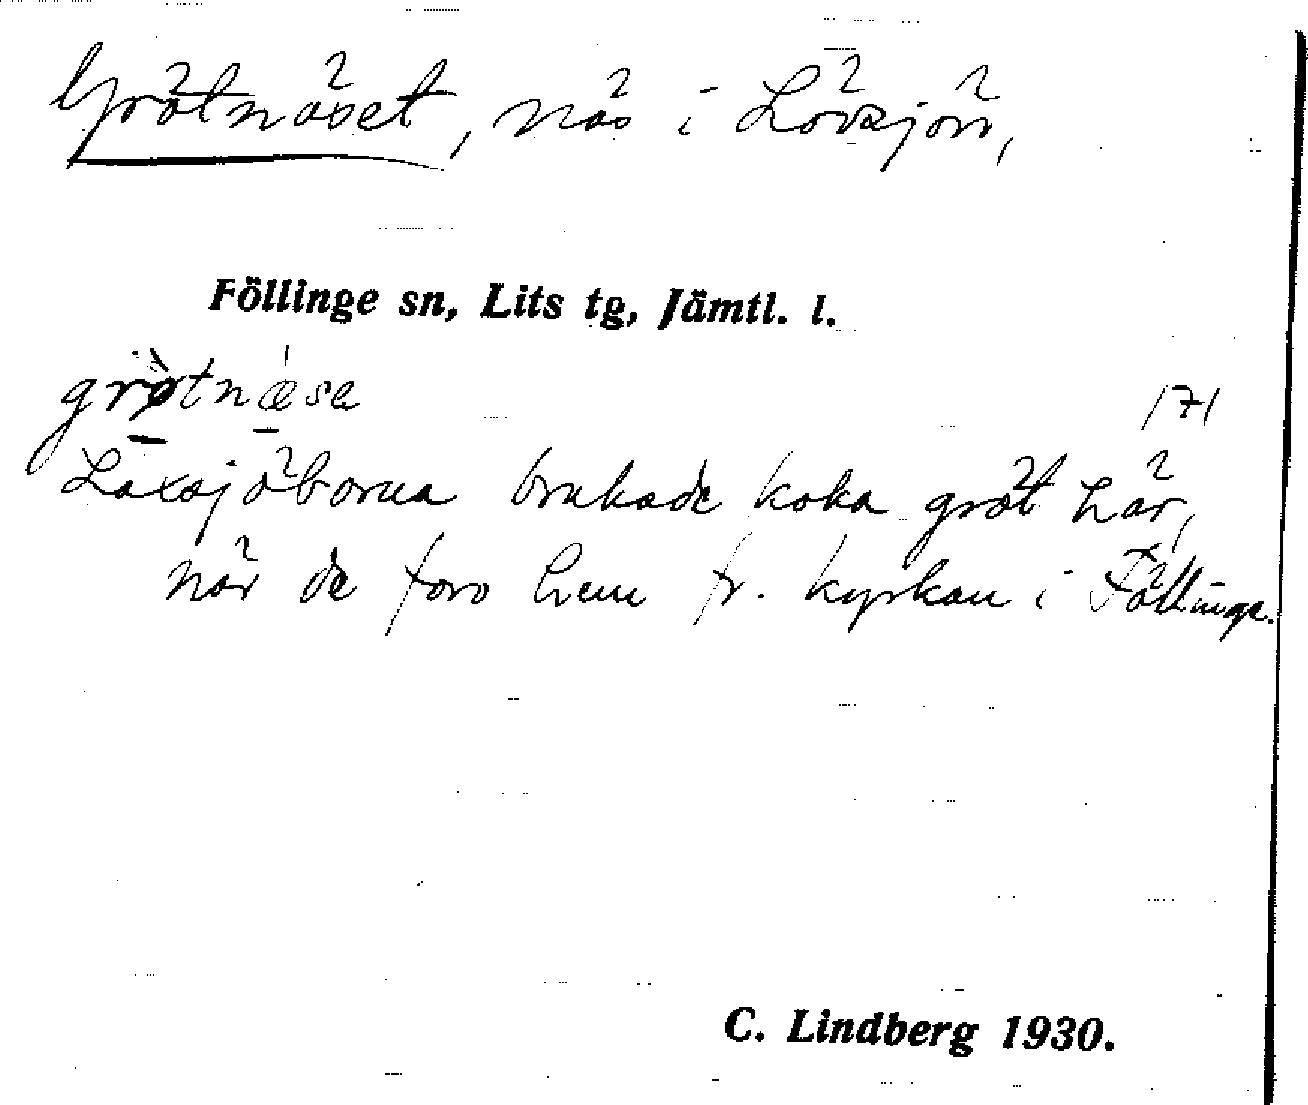 Grötnäset, näs i Lövsjön,
Föllinge sn, Lits tg, Jämtl. l.
grø̀tnǽsa
171
Laxsjöborna brukade koka gröt här,
när de foro hem fr. kyrkan i Föllinge.
C. Lindberg 1930.